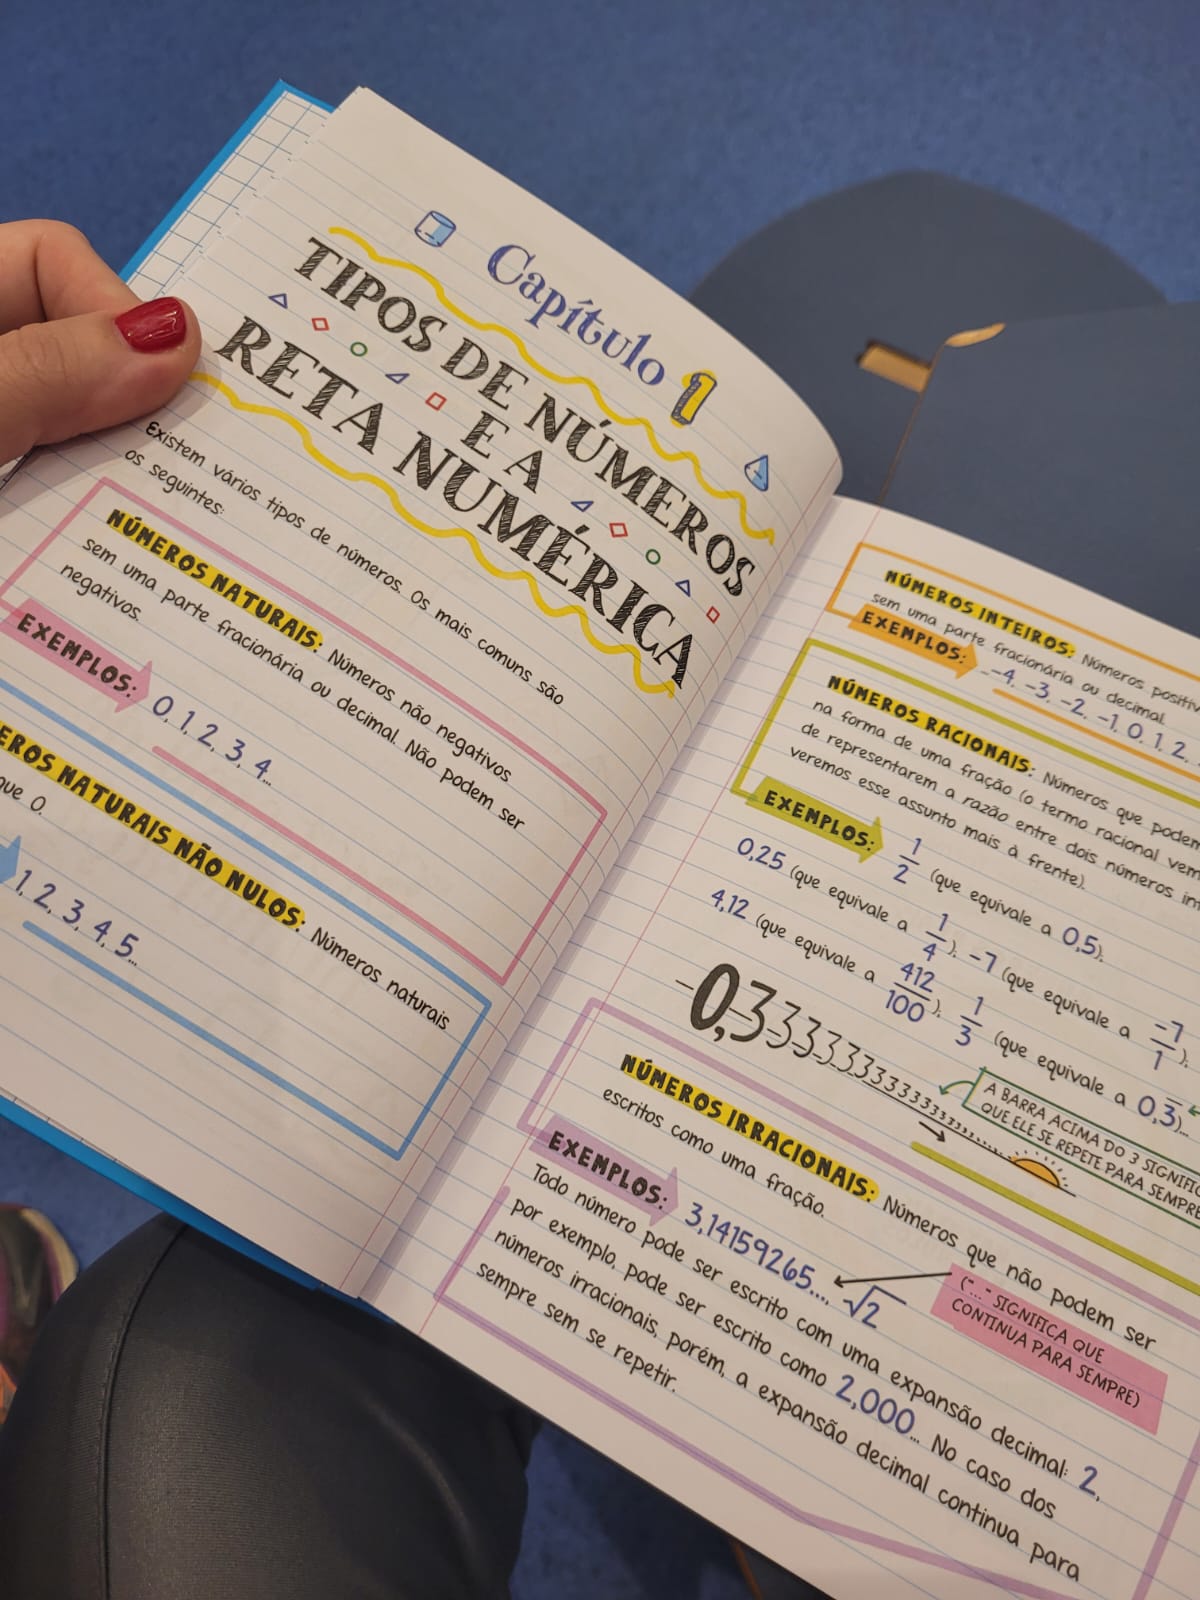 Capítulo 1
TIPOS DE NÚMEROS
E A
RETA NUMÉRICA
Existem vários tipos de números. Os mais comuns são
os seguintes:
NÚMEROS NATURAIS: Números não negativos
sem uma parte fracionária ou decimal. Não podem ser
negativos.
EXEMPLOS: 0, 1, 2, 3, 4...
NATURAIS NÃO NULOS: Números naturais
que 0.
1, 2, 3, 4, 5...
NÚMEROS INTEIROS: Números
sem uma parte fracionária ou decimal.
EXEMPLOS: ...-4, -3, -2, -1, 0, 1, 2,
NÚMEROS RACIONAIS: Números que podem
na forma de uma fração (o termo racional vem
de representarem a razão entre dois números
veremos esse assunto mais à frente).
EXEMPLOS: 1/2 (que equivale a 0,5);
0,25 (que equivale a 1/4); -7 (que equivale a -7/1);
4,12 (que equivale a 412/100); 1/3 (que equivale a 0,3̅)...
-0,33333333333333333333...
A BARRA ACIMA DO 3
QUE ELE SE REPETE PARA SEMPRE
NÚMEROS IRRACIONAIS: Números que não podem ser
escritos como uma fração.
EXEMPLOS: 3,14159265..., √2
("..." SIGNIFICA QUE
CONTINUA PARA SEMPRE)
Todo número pode ser escrito com uma expansão decimal: 2,
por exemplo, pode ser escrito como 2,000... No caso dos
números irracionais, porém, a expansão decimal continua para
sempre sem se repetir.